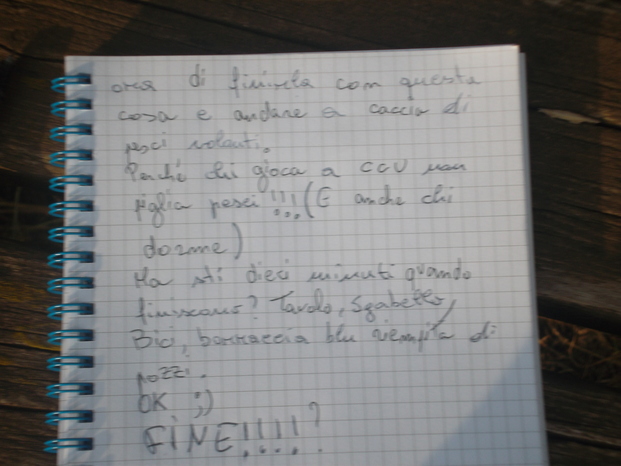 ora di finirla con questa
cosa e andare a caccia di
pesci volanti.
Perché chi gioca a CCU non
piglia pesci!!!(E anche chi
dorme)
Ma sti dieci minuti quando
finiscano? Tavolo, Sgabello,
Bic, borraccia blu riempita di
pozzi.
OK ;)
FINE!!!!?